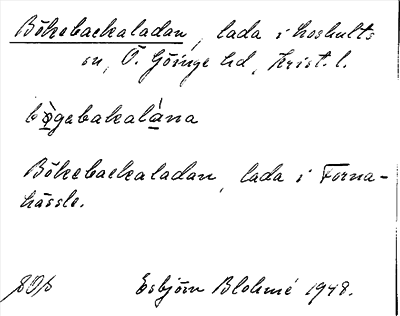 Bökebackaladan, lada i Loshults
sn, Ö. Göinge hd, Krist. l.
bø̀gabakalána
Bökebackaladan, lada i Forna-
hässle.
Esbjörn Blohmé 1948.